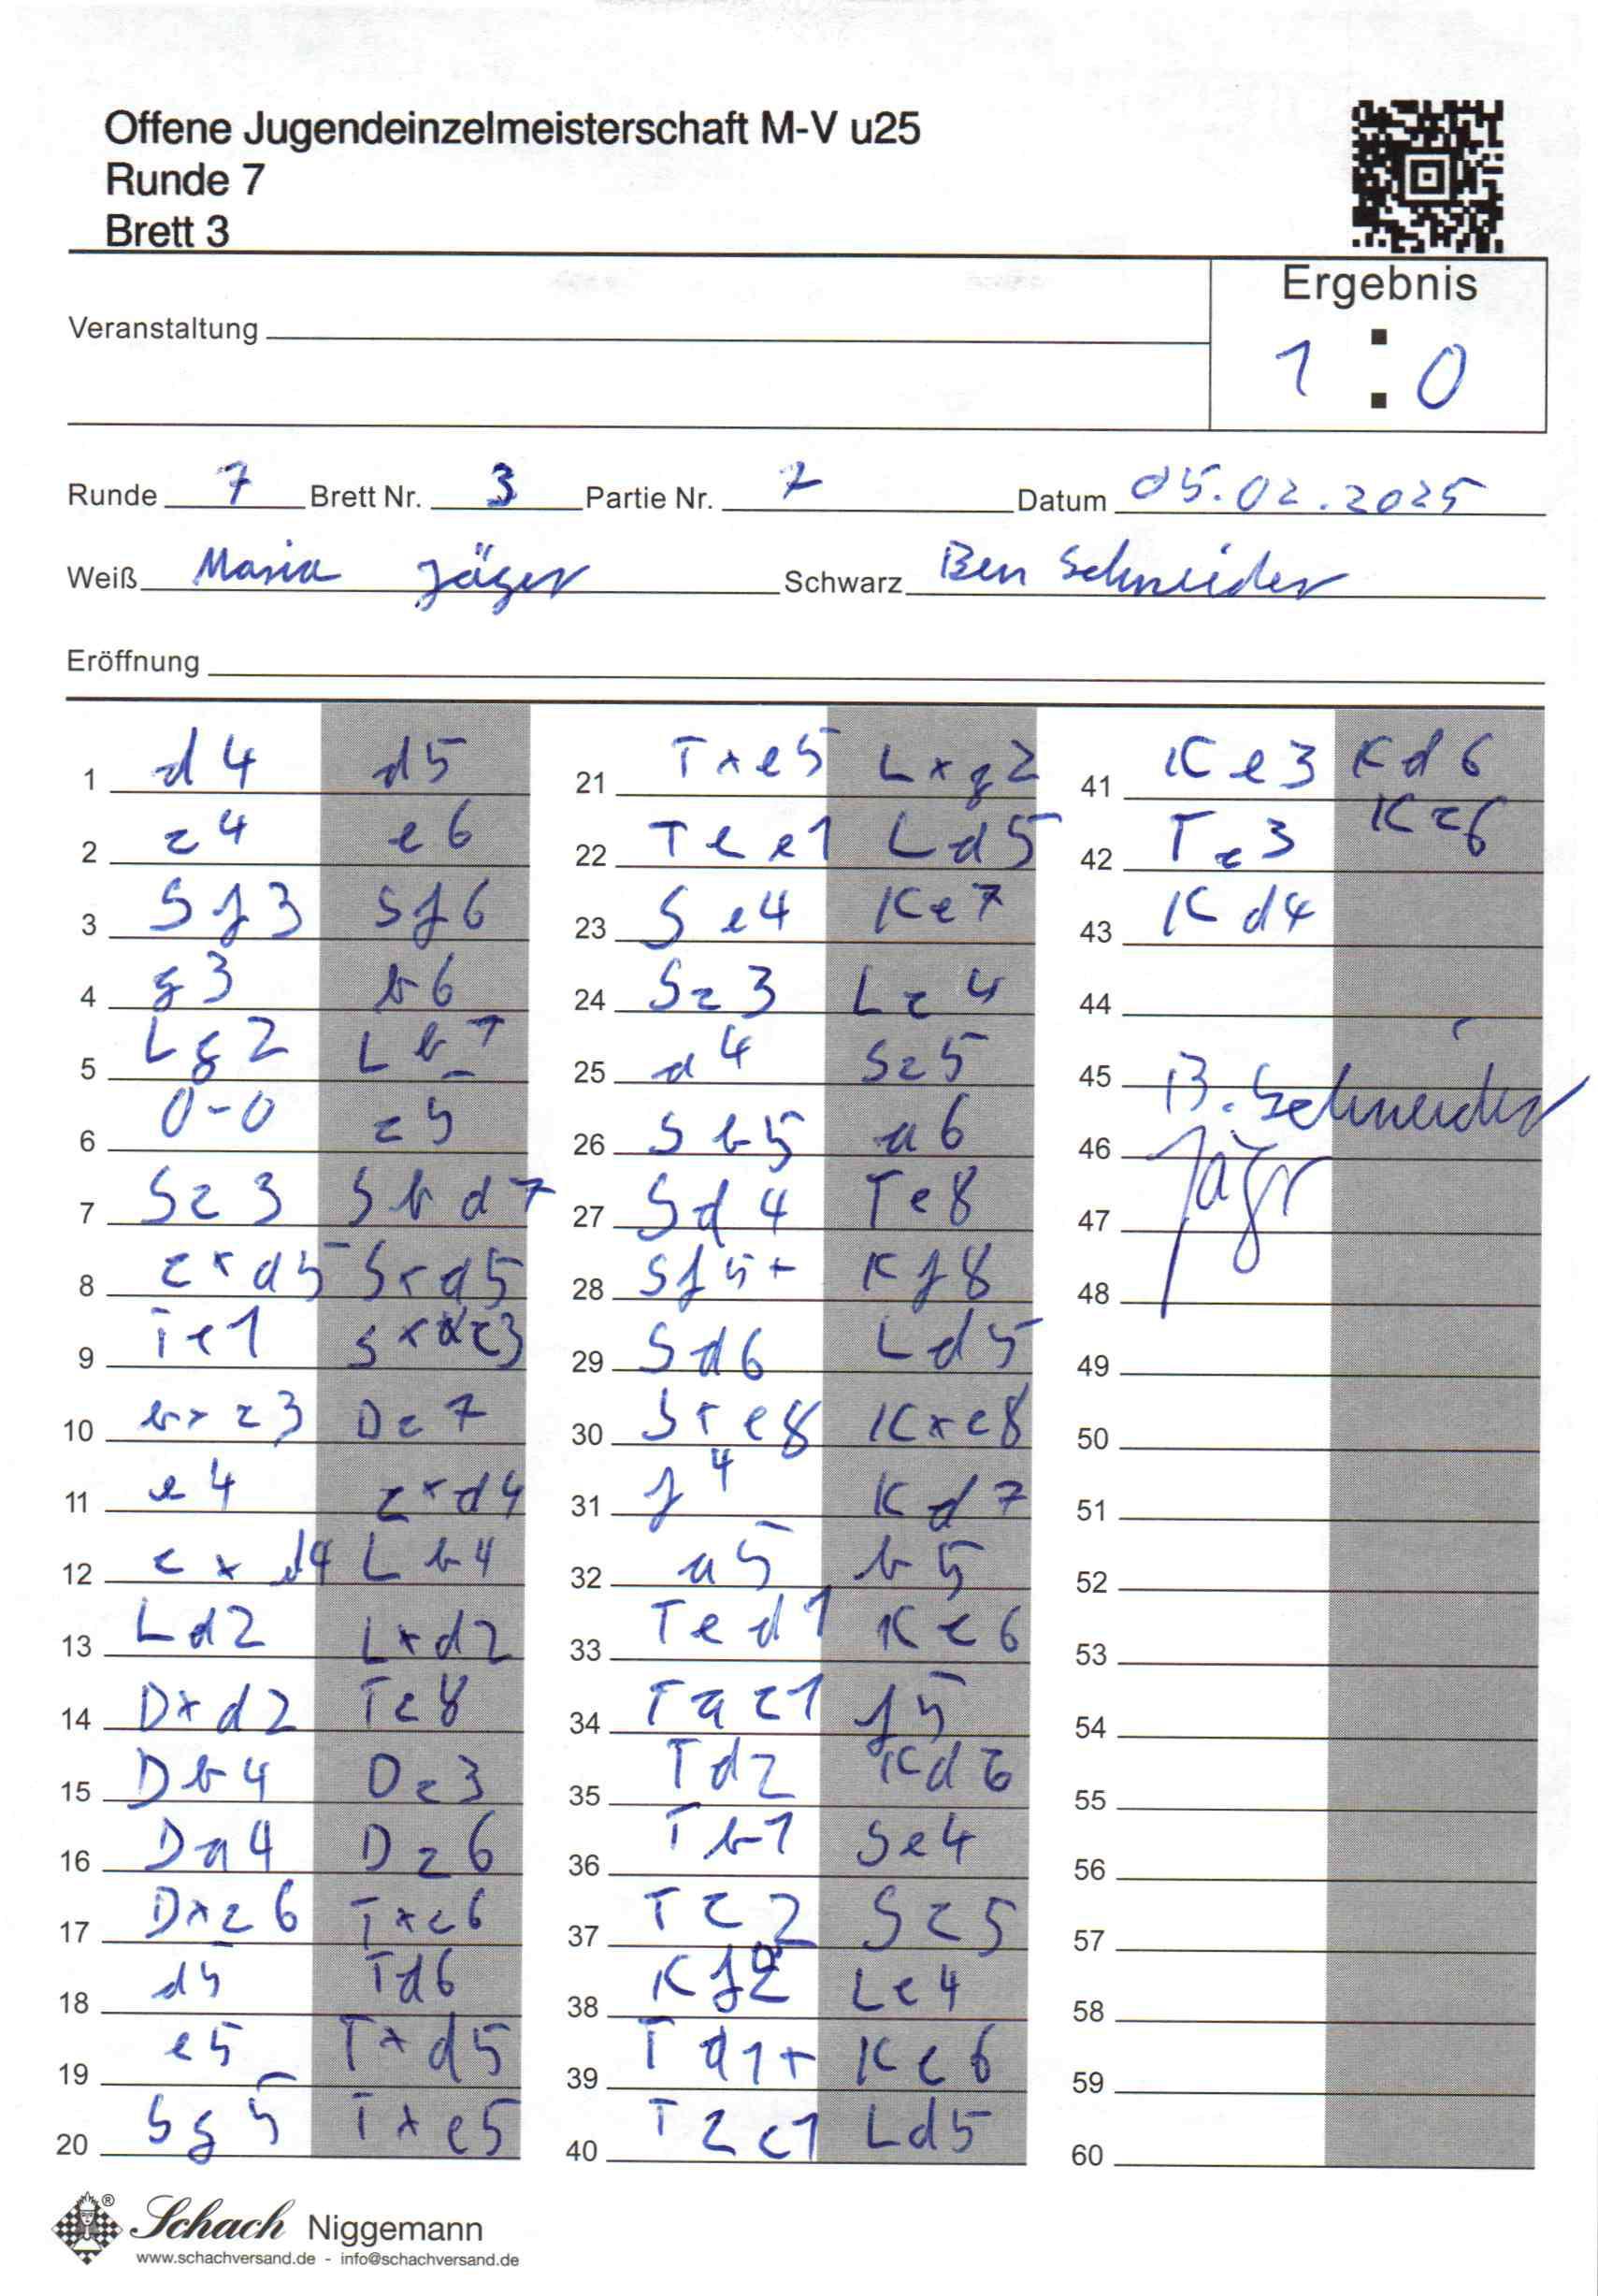 Offene Jugendeinzelmeisterschaft M-V u25
Runde 7
Brett 3
Ergebnis
1 : 0
Veranstaltung
Runde 7 Brett Nr. 3 Partie Nr. 7 Datum 05.02.2025
Weiß Maria Jäger Schwarz Ben Schneider
Eröffnung
1 d4 d5
2 c4 e6
3 Sf3 Sf6
4 g3 b6
5 Lg2 Lb7
6 0-0 c5
7 Sc3 Sbd7
8 cxd5 Sxd5
9 Te1 Sxc3
10 bxc3 Dc7
11 e4 cxd4
12 cxd4 Lb4
13 Ld2 Lxd2
14 Dxd2 Tc8
15 Db4 Dc3
16 Da4 Dc6
17 Dxc6 Txc6
18 d5 Td6
19 e5 Txd5
20 Sg5 Txe5
21 Txe5 Lxg2
22 Tee1 Ld5
23 Se4 Ke7
24 Sc3 Lc4
25 a4 Sc5
26 Sb5 a6
27 Sd4 Te8
28 Sf5+ Kf8
29 Sd6 Ld5
30 Sxe8 Kxe8
31 f4 Kd7
32 a5 b5
33 Ted1 Kc6
34 Tac1 f5
35 Td2 Kd6
36 Tb1 Se4
37 Tc2 Sc5
38 Kf2 Le4
39 Td1+ Kc6
40 Tcc1 Ld5
41 Ke3 Kd6
42 Tc3 Kc6
43 Kd4
44
45 B. Schneider
46 Jäger
47
48
49
50
51
52
53
54
55
56
57
58
59
60
Schach Niggemann
www.schachversand.de - info@schachversand.de